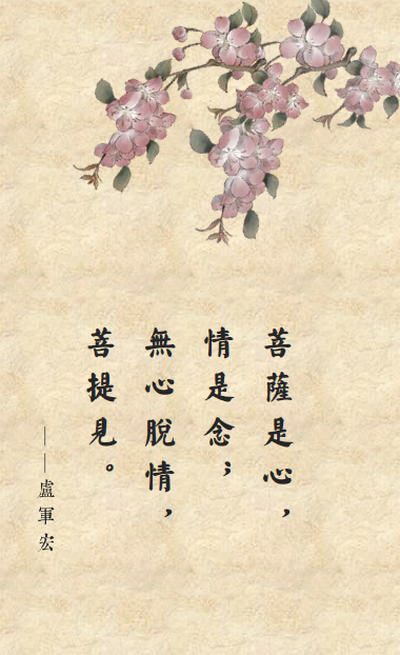 菩薩是心，
情是念；
無心脫情，
菩提見。
——盧軍宏